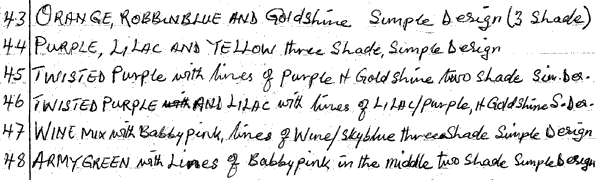 43 ORANGE, ROBBINBLUE AND Goldshine Simple Design (3 Shade)
44 PURPLE, LILAC AND YELLOW three Shade, Simple Design
45 TWISTED Purple with lines of Purple H Goldshine two shade Sim. Des.
46 TWISTED PURPLE AND LILAC with lines of LILAC/purple, H Goldshine S. Des.
47 WINE Mix with Babbypink, lines of Wine/Skyblue three Shade Simple Design
48 ARMY GREEN with Lines of Babbypink in the middle two shade Simple Design